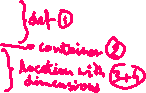 def ①
container ②
location with
dimensions ③+④